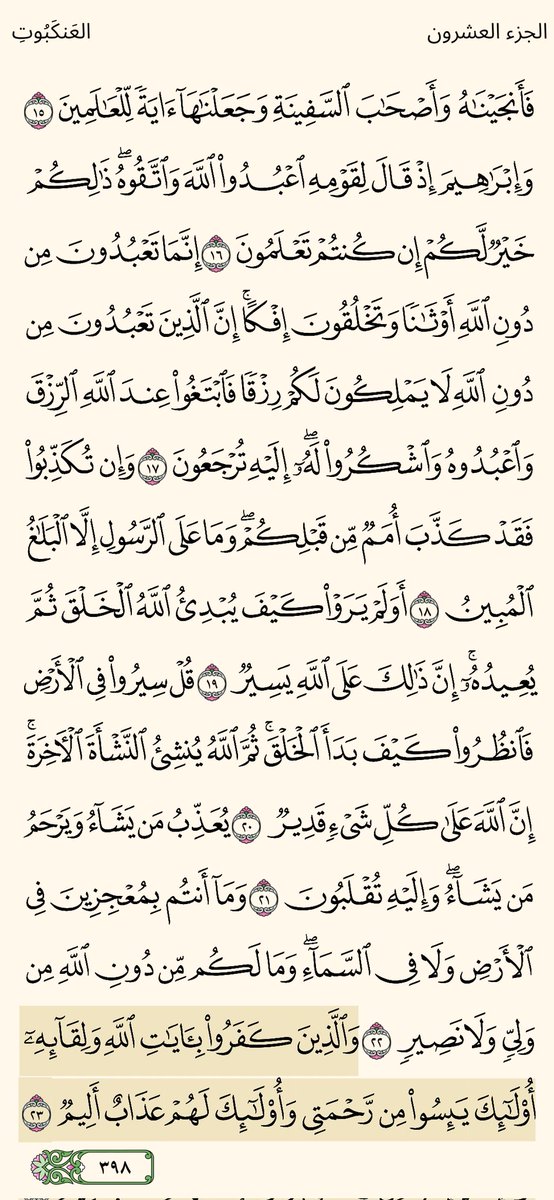 الجزء العشرون
العَنكَبُوتِ
فَأَنجَيْنَٰهُ وَأَصْحَٰبَ ٱلسَّفِينَةِ وَجَعَلْنَٰهَآ ءَايَةً لِّلْعَٰلَمِينَ ١٥
وَإِبْرَٰهِيمَ إِذْ قَالَ لِقَوْمِهِ ٱعْبُدُوا۟ ٱللَّهَ وَٱتَّقُوهُ ۖ ذَٰلِكُمْ
خَيْرٌ لَّكُمْ إِن كُنتُمْ تَعْلَمُونَ ١٦ إِنَّمَا تَعْبُدُونَ مِن
دُونِ ٱللَّهِ أَوْثَٰنًا وَتَخْلُقُونَ إِفْكًا ۚ إِنَّ ٱلَّذِينَ تَعْبُدُونَ مِن
دُونِ ٱللَّهِ لَا يَمْلِكُونَ لَكُمْ رِزْقًا فَٱبْتَغُوا۟ عِندَ ٱللَّهِ ٱلرِّزْقَ
وَٱعْبُدُوهُ وَٱشْكُرُوا۟ لَهُۥٓ ۖ إِلَيْهِ تُرْجَعُونَ ١٧ وَإِن تُكَذِّبُوا۟
فَقَدْ كَذَّبَ أُمَمٌ مِّن قَبْلِكُمْ ۖ وَمَا عَلَى ٱلرَّسُولِ إِلَّا ٱلْبَلَٰغُ
ٱلْمُبِينُ ١٨ أَوَلَمْ يَرَوْا۟ كَيْفَ يُبْدِئُ ٱللَّهُ ٱلْخَلْقَ ثُمَّ
يُعِيدُهُۥٓ ۚ إِنَّ ذَٰلِكَ عَلَى ٱللَّهِ يَسِيرٌ ١٩ قُلْ سِيرُوا۟ فِى ٱلْأَرْضِ
فَٱنظُرُوا۟ كَيْفَ بَدَأَ ٱلْخَلْقَ ۚ ثُمَّ ٱللَّهُ يُنشِئُ ٱلنَّشْأَةَ ٱلْءَاخِرَةَ ۚ
إِنَّ ٱللَّهَ عَلَىٰ كُلِّ شَىْءٍ قَدِيرٌ ٢٠ يُعَذِّبُ مَن يَشَآءُ وَيَرْحَمُ
مَن يَشَآءُ ۖ وَإِلَيْهِ تُقْلَبُونَ ٢١ وَمَآ أَنتُم بِمُعْجِزِينَ فِى
ٱلْأَرْضِ وَلَا فِى ٱلسَّمَآءِ ۖ وَمَا لَكُم مِّن دُونِ ٱللَّهِ مِن
وَلِىٍّ وَلَا نَصِيرٍ ٢٢ وَٱلَّذِينَ كَفَرُوا۟ بِـَٔايَٰتِ ٱللَّهِ وَلِقَآئِهِۦٓ
أُو۟لَٰٓئِكَ يَئِسُوا۟ مِن رَّحْمَتِى وَأُو۟لَٰٓئِكَ لَهُمْ عَذَابٌ أَلِيمٌ ٢٣
٣٩٨